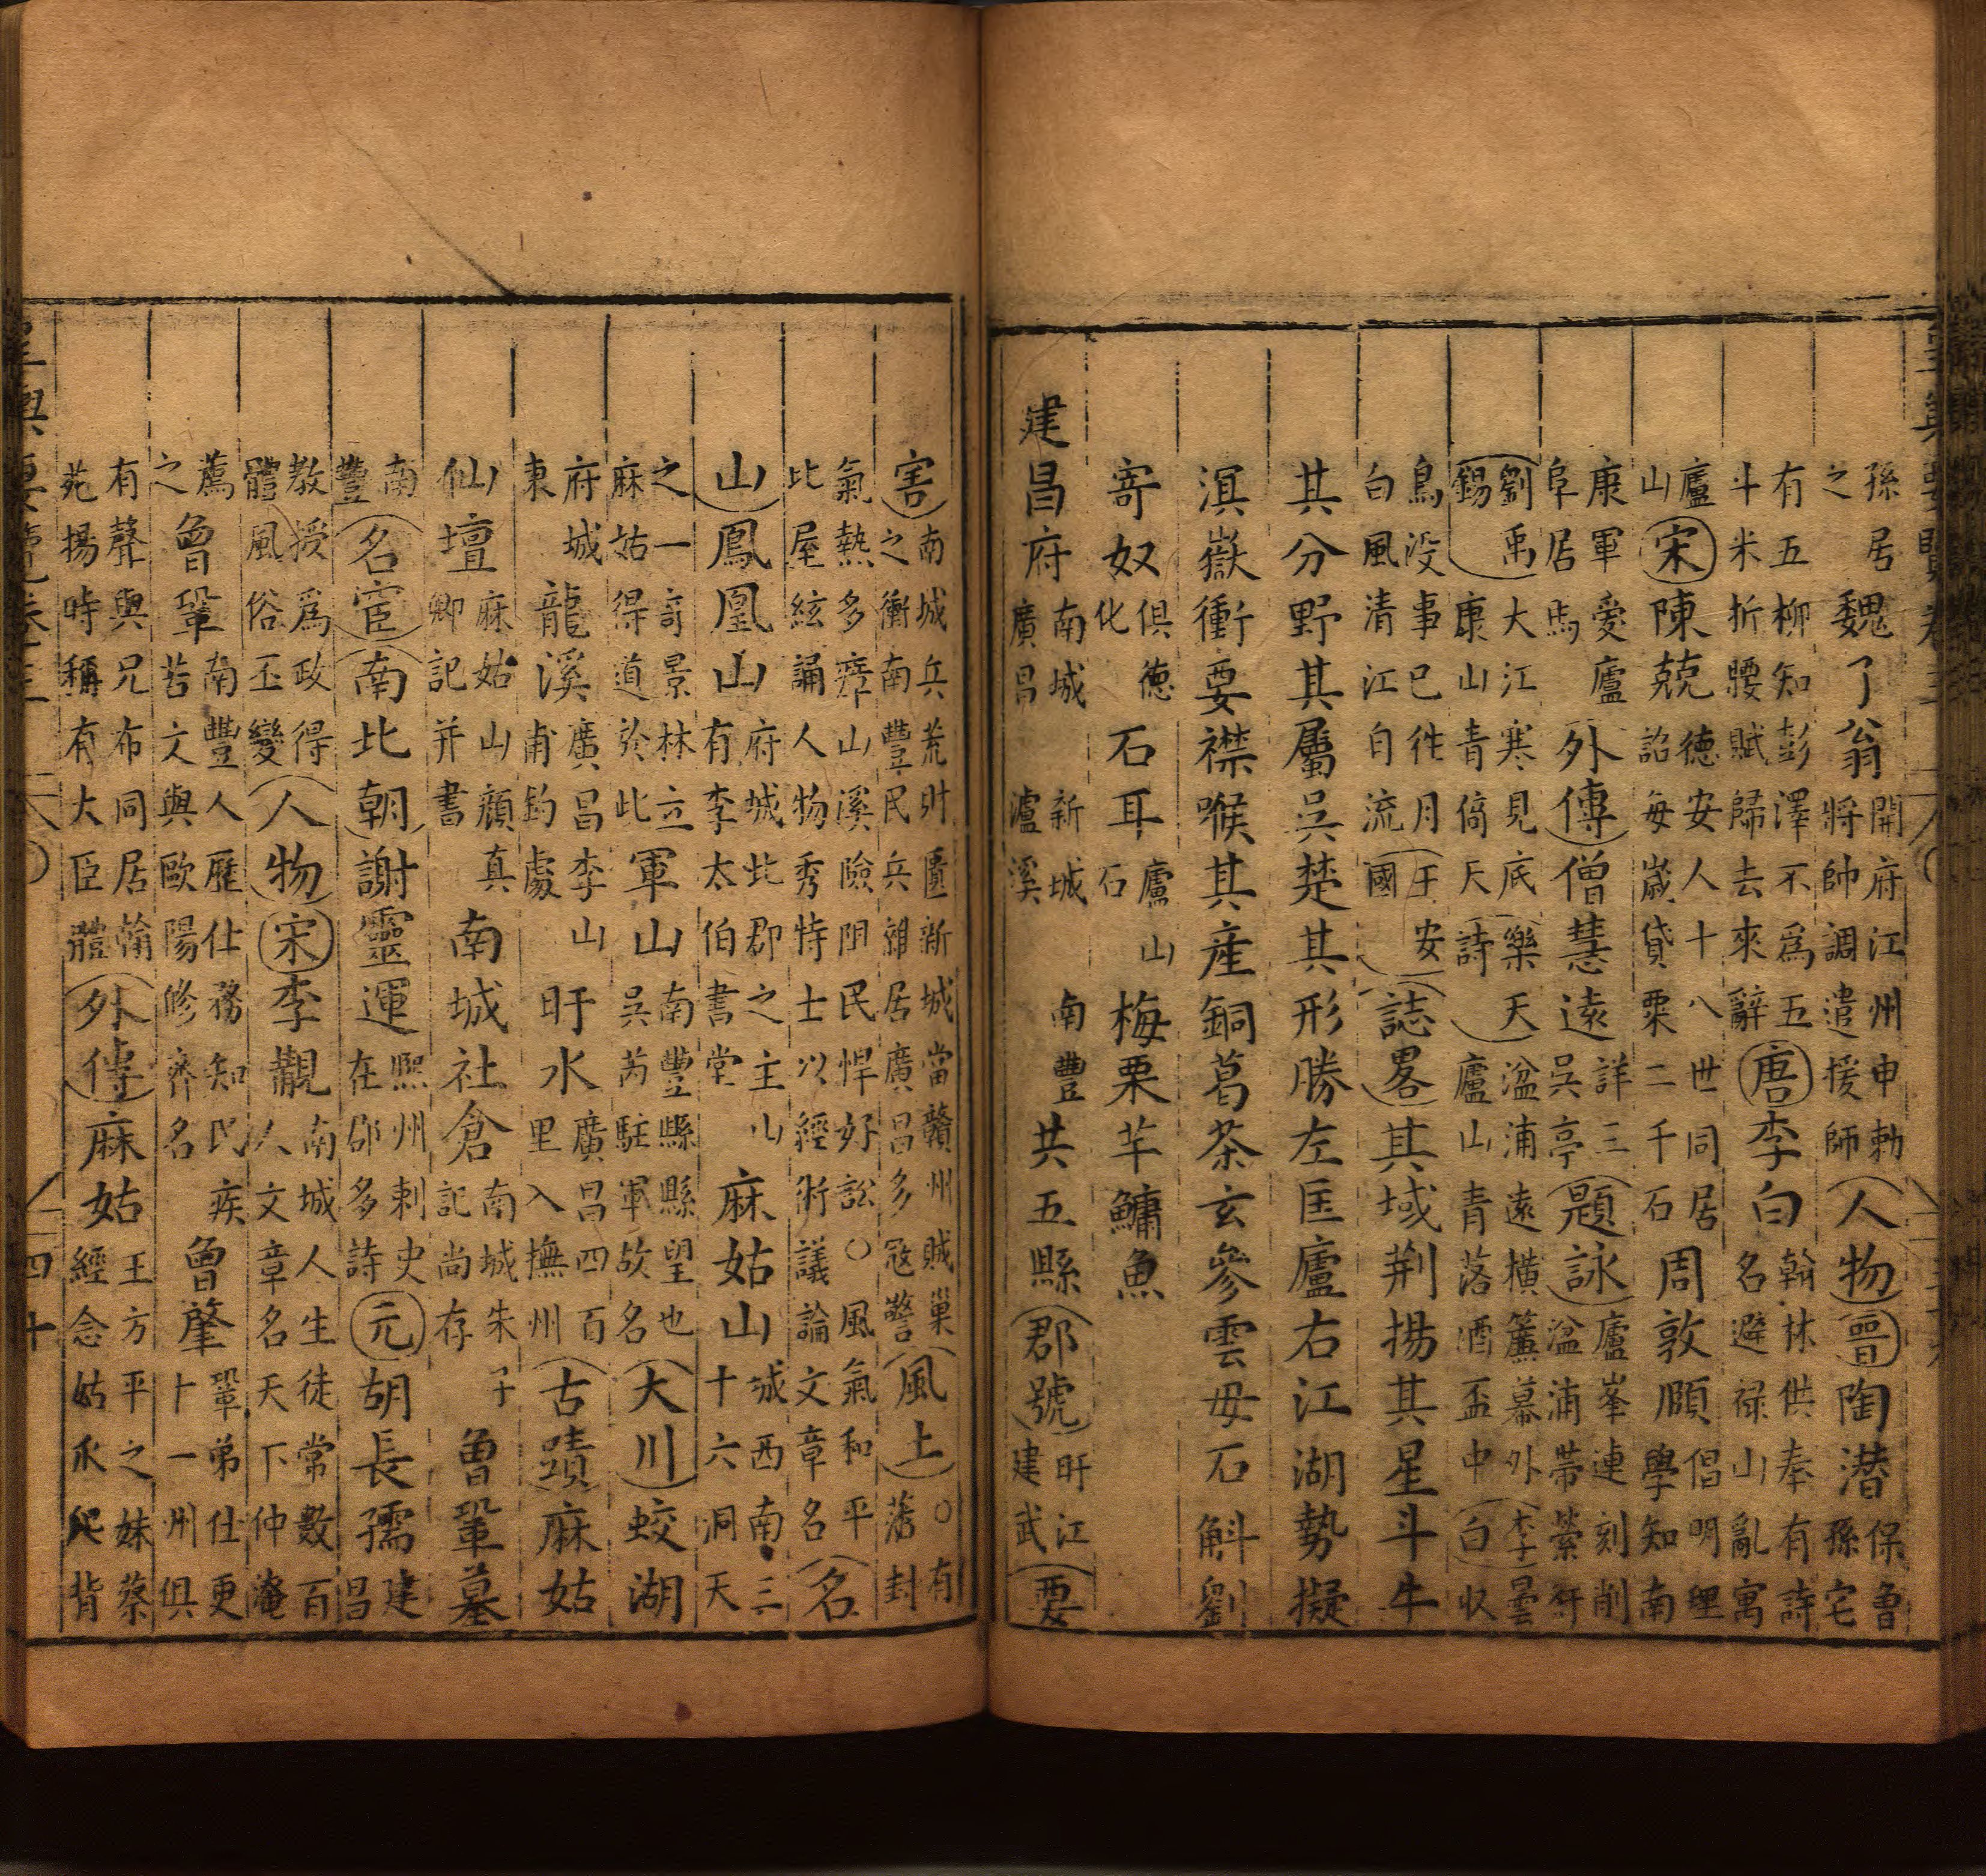 孫居之魏了翁開府江州申勅將帥調遣援師人物晉陶潛保魯孫宅
有五柳知彭澤不爲五斗米折腰賦歸去來辭唐李白翰林供奉有詩名避禄山亂寓
廬山宋陳兢德安人十八世同居詔每歲貸粟二千石周敦頤倡明理學知南
康軍愛廬阜居焉外傳僧慧遠詳三吳亭題詠廬峯連刻削盆浦帶縈紆
劉禹錫大江寒見底康山青倚天樂天詩湓浦遠橫簾幕外廬山青落酒盃中李白曇収
鳥没事已徃月白風清江自流王安國誌畧其域荆揚其星斗牛
其分野其屬吳楚其形勝左匡廬右江湖勢擬
滇嶽衝要襟喉其産銅葛茶玄參雲母石斛劉
寄奴俱德化石耳廬山石梅栗芋鱅魚
建昌府南城廣昌新城瀘溪南豐共五縣郡號盱江建武要
害南城兵荒財匱新城當贛州賊巢之衝南豐民兵雜居廣昌多寇警風土○有藩封
氣熱多瘴山溪險阻民悍好訟○風氣和平比屋絃誦人物秀特士以經術議論文章名名
山鳳凰山府城北郡之主山有李太伯書堂麻姑山城西南三十六洞天
之一奇景林立麻姑得道於此軍山南豐縣縣望也吳芮駐軍故名大川蛟湖
府城東龍溪廣昌李山甫釣處盱水廣昌四百里入撫州古蹟麻姑
仙壇麻姑山顔真卿記并書南城社倉南城朱子記尚存曾鞏墓
南豐名宦南北朝謝靈運熙州刺史在郡多詩元胡長孺建昌
教授爲政得體風俗丕變人物宋李覯南城人生徒常數百人文章名天下仲淹
薦之曾鞏南豐人歷仕務知民疾苦文與歐陽修齊名曾肇鞏弟仕更十一州俱
有聲與兄布同居翰苑揚時稱有大臣體外傳麻姑王方平之妹蔡經念姑爪爬背
皇輿要覽卷三 四十